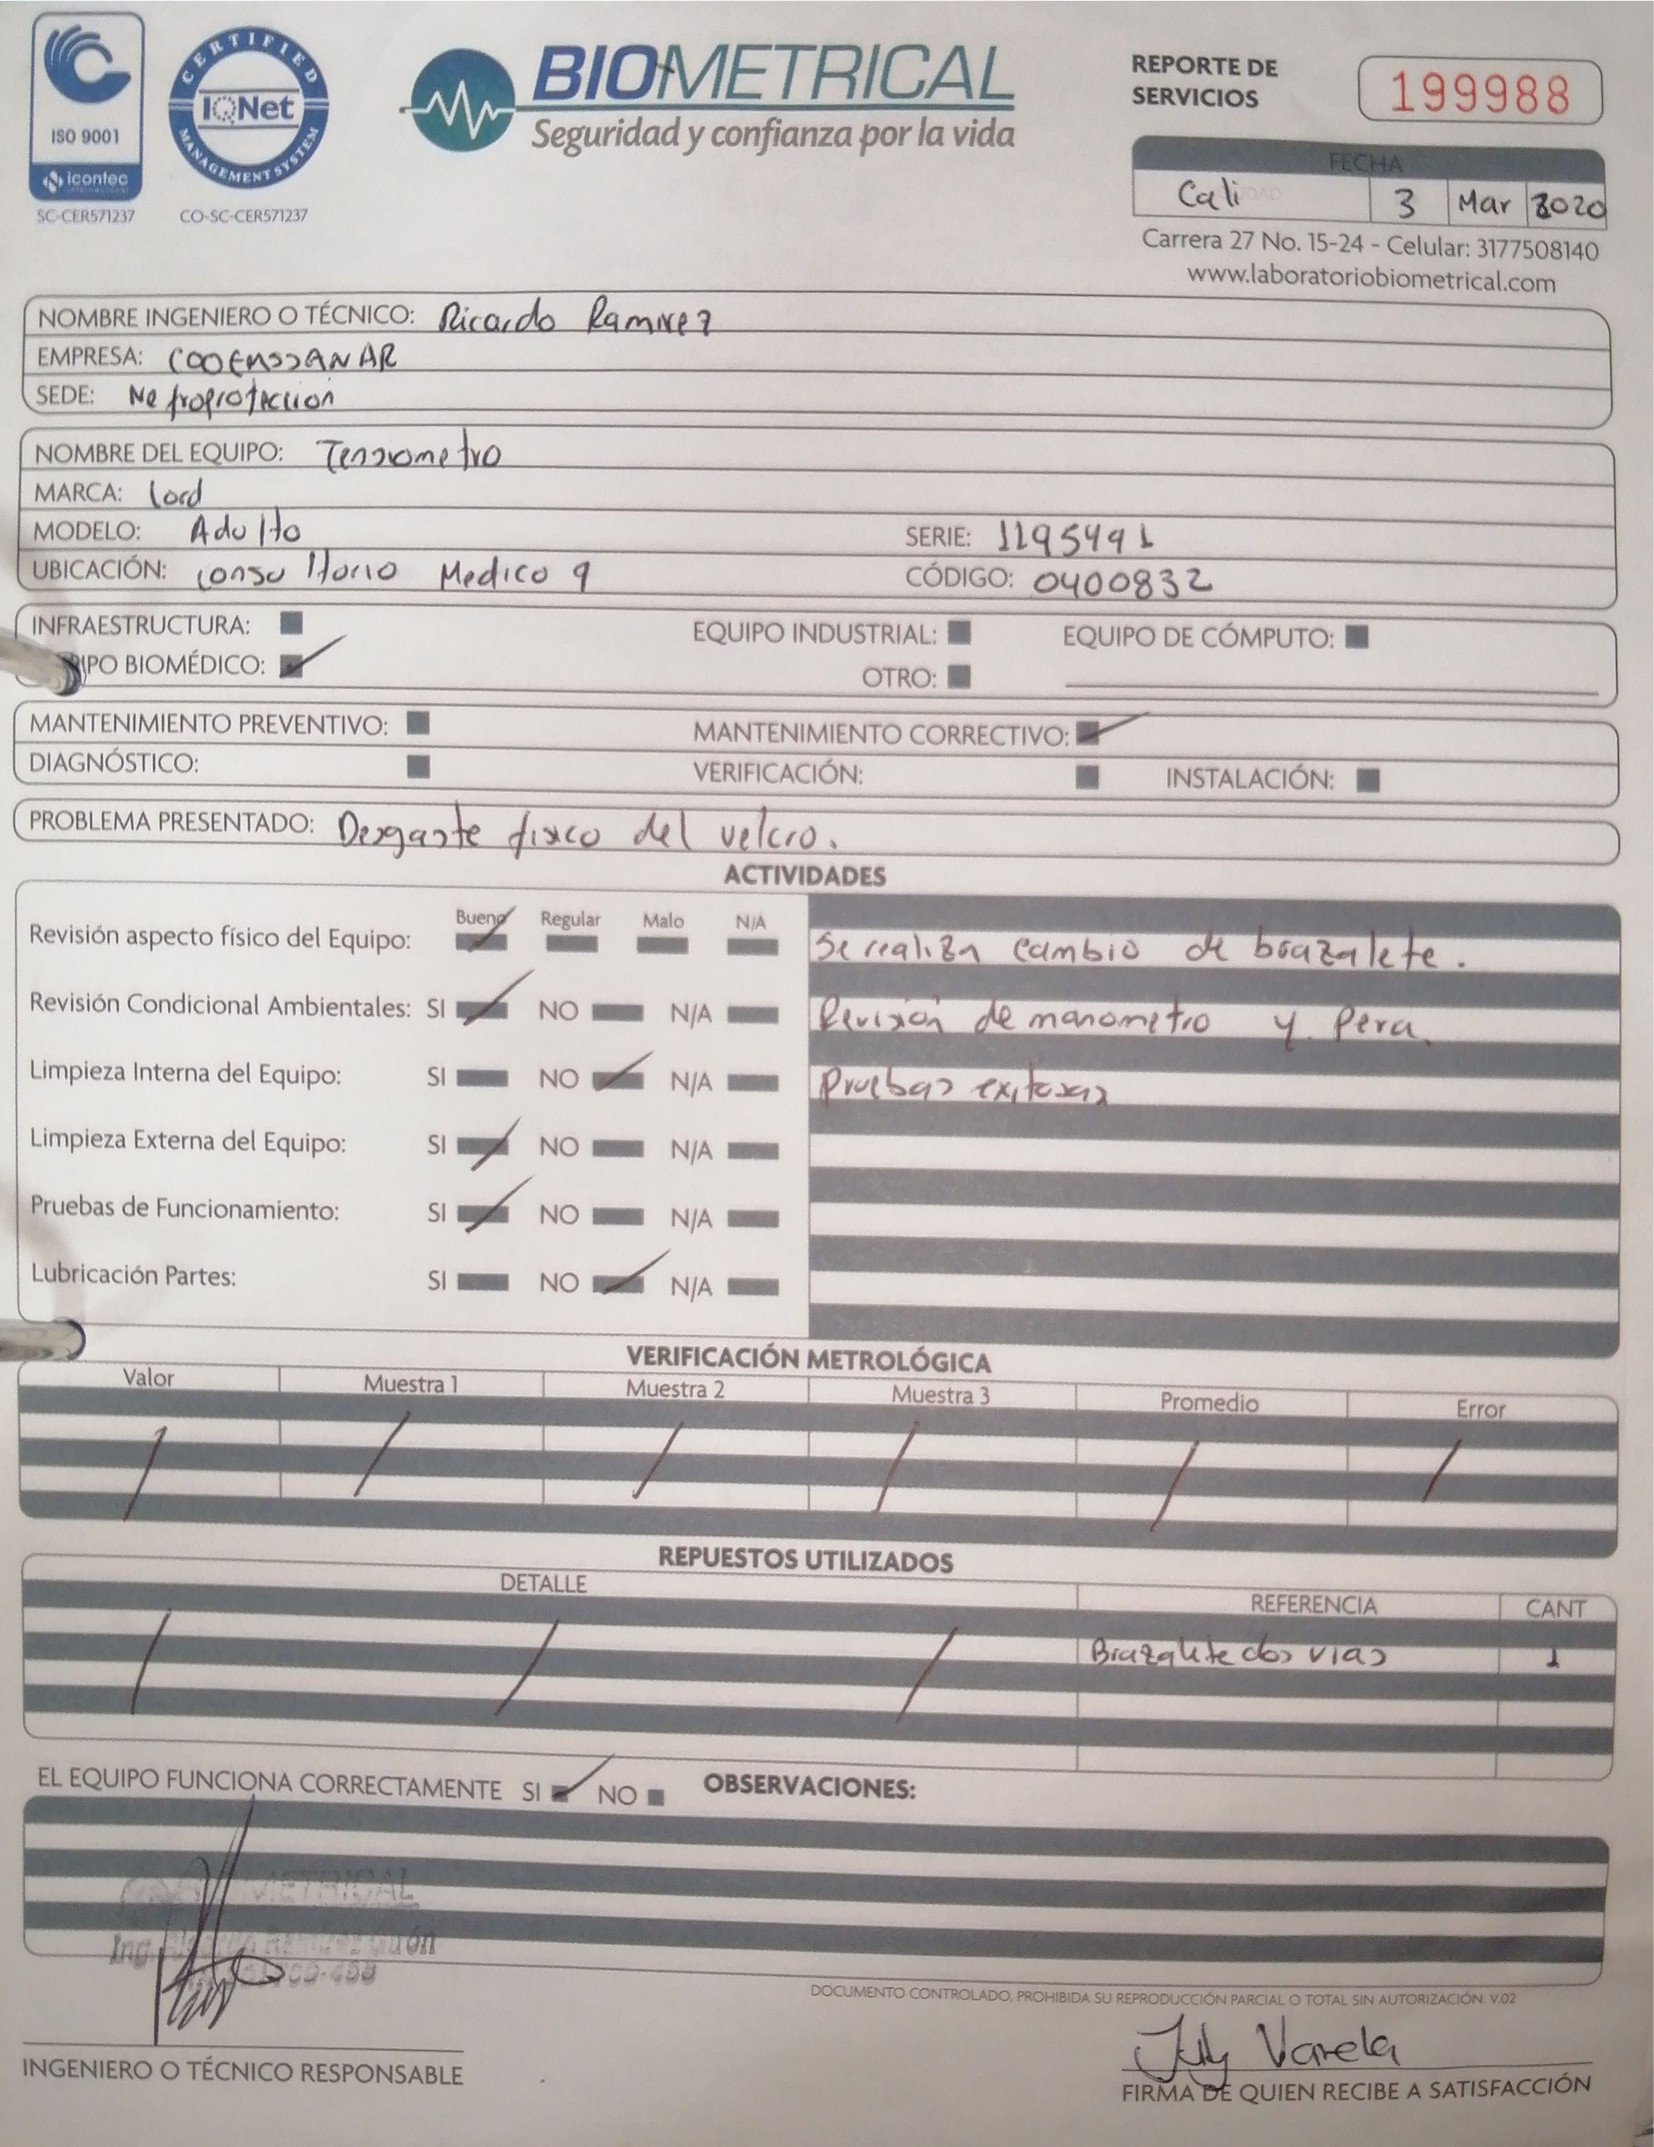 ISO 9001
icontec
SC-CER571237
CERTIFIED
IQNet
MANAGEMENT SYSTEM
CO-SC-CER571237
BIOMETRICAL
Seguridad y confianza por la vida
REPORTE DE
SERVICIOS
199988
FECHA
Cali 3 Mar 2020
Carrera 27 No. 15-24 - Celular: 3177508140
www.laboratoriobiometrical.com
NOMBRE INGENIERO O TÉCNICO: Ricardo Ramirez
EMPRESA: COOEMSSANAR
SEDE: Nefroproteccion
NOMBRE DEL EQUIPO: Tensiometro
MARCA: Lord
MODELO: Adulto SERIE: 1195491
UBICACIÓN: consultorio Medico 9 CÓDIGO: 0400832
INFRAESTRUCTURA: EQUIPO INDUSTRIAL: EQUIPO DE CÓMPUTO:
IPO BIOMÉDICO: OTRO:
MANTENIMIENTO PREVENTIVO: MANTENIMIENTO CORRECTIVO:
DIAGNÓSTICO: VERIFICACIÓN: INSTALACIÓN:
PROBLEMA PRESENTADO: Desgaste fisico del velcro.
ACTIVIDADES
Bueno Regular Malo N/A
Revisión aspecto físico del Equipo: Se realiza cambio de brazalete.
Revisión Condicional Ambientales: SI NO N/A Revisión de manometro y Pera.
Limpieza Interna del Equipo: SI NO N/A Pruebas exitosas
Limpieza Externa del Equipo: SI NO N/A
Pruebas de Funcionamiento: SI NO N/A
Lubricación Partes: SI NO N/A
VERIFICACIÓN METROLÓGICA
Valor Muestra 1 Muestra 2 Muestra 3 Promedio Error
REPUESTOS UTILIZADOS
DETALLE REFERENCIA CANT
Brazalete dos vias 1
EL EQUIPO FUNCIONA CORRECTAMENTE SI NO OBSERVACIONES:
METRICAL
Ing.
DOCUMENTO CONTROLADO, PROHIBIDA SU REPRODUCCIÓN PARCIAL O TOTAL SIN AUTORIZACIÓN. V.02
July Varela
INGENIERO O TÉCNICO RESPONSABLE
FIRMA DE QUIEN RECIBE A SATISFACCIÓN